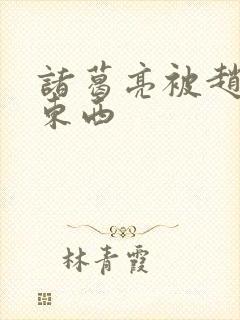 諸葛亮被趙
東西
林青霞